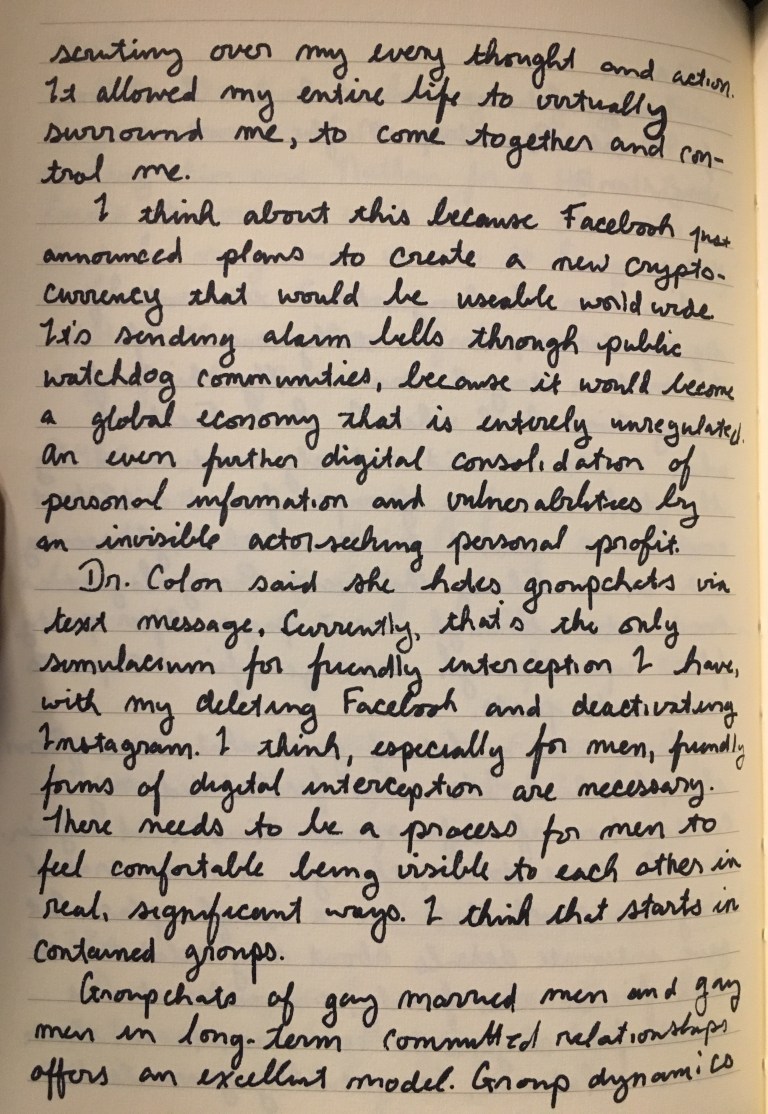 scrutiny over my every thought and action.
It allowed my entire life to virtually
surround me, to come together and con-
trol me.
I think about this because Facebook just
announced plans to create a new crypto-
currency that would be useable world wide
It's sending alarm bells through public
watchdog communities, because it would become
a global economy that is entirely unregulated.
An even further digital consolidation of
personal information and vulnerabilities by
an invisible actor seeking personal profit.
Dr. Colon said she hates groupchats via
text message. Currently, that's the only
simulacrum for friendly interception I have,
with my deleting Facebook and deactivating
Instagram. I think, especially for men, friendly
forms of digital interception are necessary.
There needs to be a process for men to
feel comfortable being visible to each other in
real, significant ways. I think that starts in
contained groups.
Groupchats of gay married men and gay
men in long-term committed relationships
offers an excellent model. Group dynamics